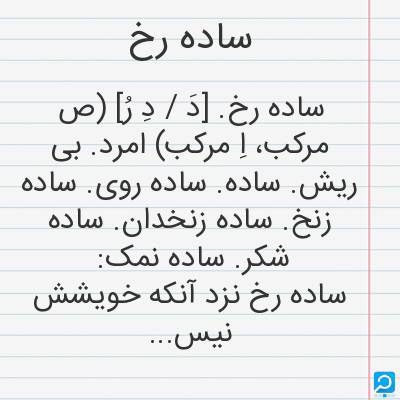 ساده رخ
ساده رخ. [دَ / دِ رُ] (ص
مرکب، اِ مرکب) امرد. بی
ریش. ساده. ساده روی. ساده
زنخ. ساده زنخدان. ساده
شکر. ساده نمک:
ساده رخ نزد آنکه خویشش
نیس...